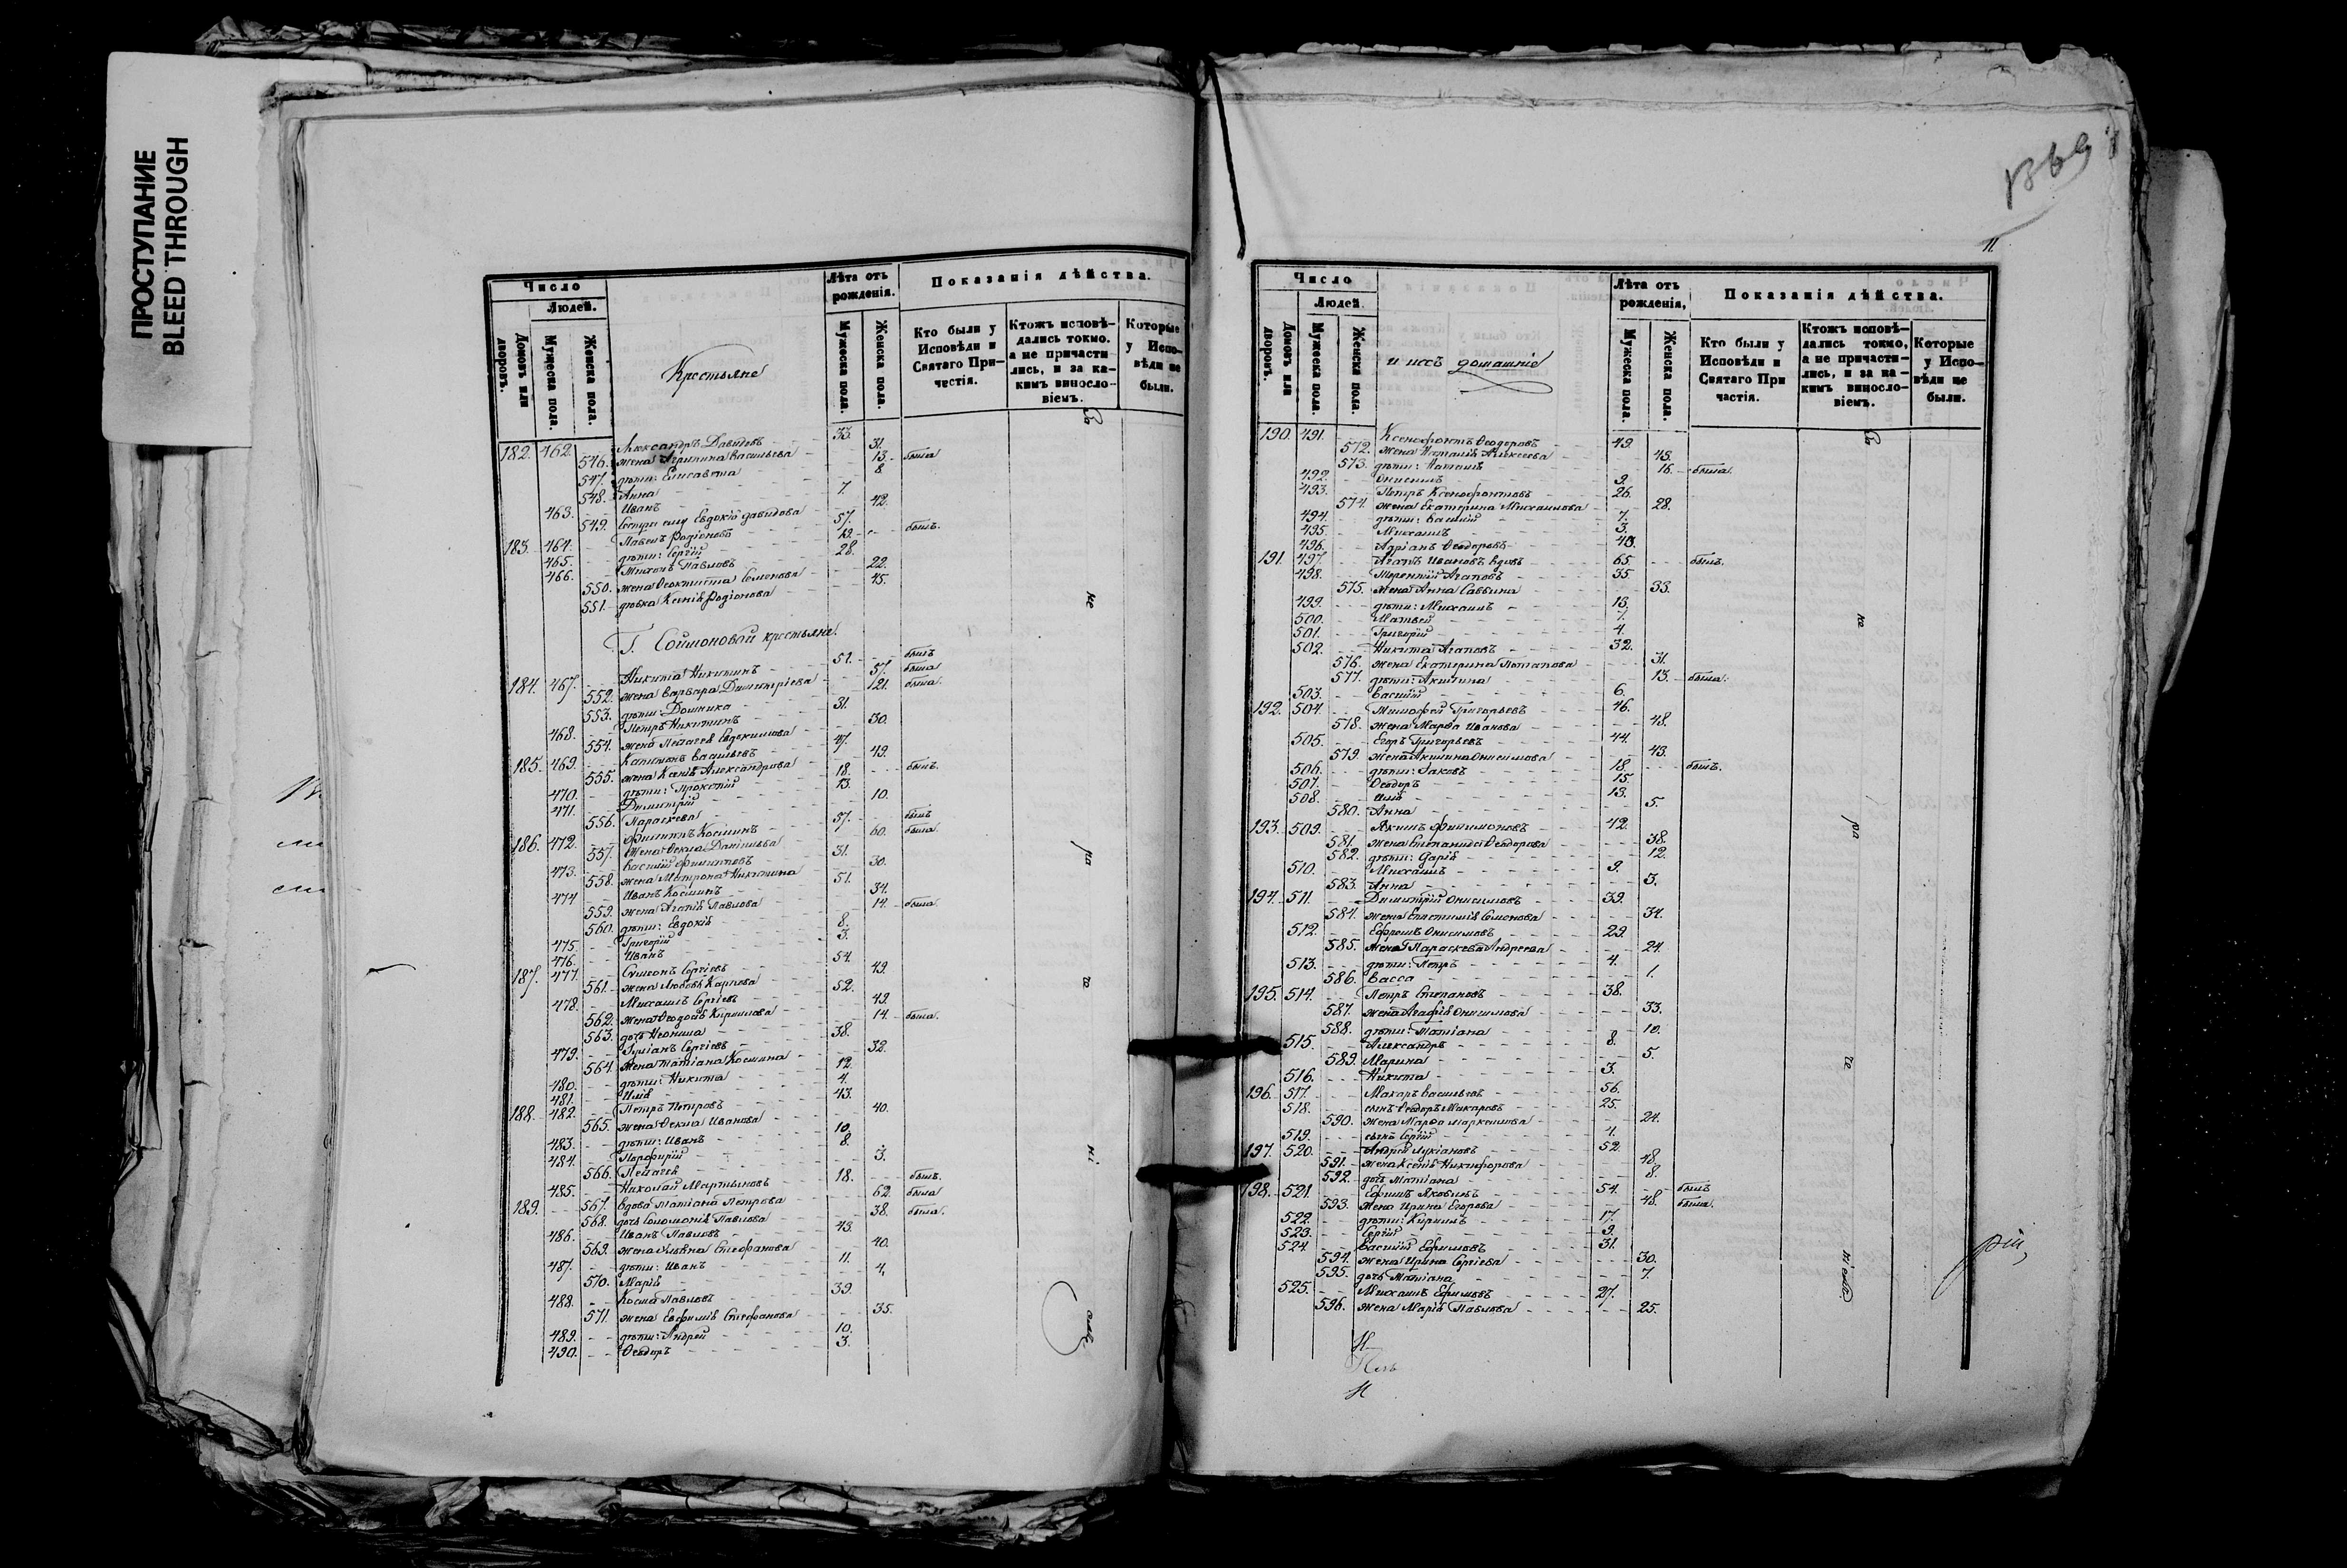 ПРОСТУПАНИЕ
BLEED THROUGH
Число
Людей.
Домовъ или дворовъ.
Мужеска пола.
Женска пола.
Крестьяне
Лѣта отъ рожденія.
Мужеска пола.
Женска пола.
Показанія дѣйства.
Кто были у Исповѣди и Святаго Причестія.
Ктожъ исповѣдались токмо, а не причастились, и за какимъ винословіемъ.
Которые у Исповѣди не были.
182. 462. Александръ Давидовъ 33.
546. жена Агрипина Васильева 31.
547. дѣти: Елисавета 13. была
548. Анна 8
463. Иванъ 7.
549. Сестра ему Евдокія Давидова 42.
183. 464. Павелъ Родіоновъ 57.
465. дѣти: Сергій 19. былъ.
466. Тихонъ Павловъ 28.
550. жена Ѳеоктиста Семенова 22.
551. дѣвка Ксенія Родіонова 45.
Г. Соймоновой крестьяне.
184. 467. Никита Никитинъ 51. былъ
552. жена Варвара Димитріева 57. была
553. дѣти: Домника 121. была.
468. Петръ Никитинъ 31.
554. жена Пелагея Евдокимова 30.
185. 469. Капитонъ Васильевъ 47.
555. жена Ксенія Александрова 49.
470. дѣти: Прокопій 18. былъ.
471. Димитрій 13.
556. Параскева 10.
186. 472. Филиппъ Косминъ 57. былъ
557. Жена Ѳекла Даніилова 60. была
473. Василій Филипповъ 31.
558. жена Матрона Никитина 30.
474 Иванъ Косминъ 51.
559. жена Агапія Павлова 34.
560. дѣти: Евдокія 14. была
475. Григорій 8.
476. Иванъ 3.
187. 477. Симеонъ Сергіевъ 54.
561. жена Любовь Карпова 49.
478. Михаилъ Сергіевъ 52.
562. жена Ѳеодосія Кириллова 49.
563. дочь Неонила 14. была.
479. Іуліанъ Сергіевъ 38.
564. жена Татіана Космина 32.
480. дѣти: Никита 12.
481. Илія 4.
188. 482. Петръ Петровъ 43.
565. жена Ѳекла Иванова 40.
483. дѣти: Иванъ 10.
484. Порфирій 8.
566. Пелагея 3.
485. Николай Мартыновъ 18. былъ.
189. 567. вдова Татіана Петрова 62. была
568. дочь Соломонія Павлова 38. была.
486. Иванъ Павловъ 43.
569. жена Ульяна Стефанова 40.
487. дѣти: Иванъ 11.
570. Марія 4.
488. Косма Павловъ 39.
571. жена Евфимія Стефанова 35.
489. дѣти: Андрей 10.
490. Ѳеодоръ 3.
11.
Число
Людей.
Домовъ или дворовъ.
Мужеска пола.
Женска пола.
и ихъ домашніе
Лѣта отъ рожденія,
Мужеска пола.
Женска пола.
Показанія дѣйства.
Кто были у Исповѣди и Святаго При частія.
Ктожъ исповѣдались токмо, а не причастились, и за какимъ винословіемъ.
Которые у Исповѣди не были.
190. 491. Ксенофонтъ Ѳеодоровъ 49.
572. жена Наталія Алексеева 43.
573. дѣти: Наталія 16. была.
492. Онисимъ 9.
493. Петръ Ксенофонтовъ 26.
574. жена Екатерина Михаилова 28.
494. дѣти: Василій 7.
495. Михаилъ 3.
496. Адріанъ Ѳеодоровъ 43.
191. 497. Агапъ Ивановъ вдовъ 65. былъ.
498. Терентій Агаповъ 35
575. жена Анна Саввина 33.
499. дѣти: Михаилъ 13.
500. Матвей 7.
501. Григорій 4.
502. Никита Агаповъ 32.
576. жена Екатерина Потапова 31.
577. дѣти: Акилина 13. была.
503. Василій 6.
192. 504. Тимофей Григорьевъ 46.
518. жена Марфа Иванова 48.
505. Егоръ Григорьевъ 44.
579. жена Акилина Онисимова 43.
506. дѣти: Іаковъ 18. былъ.
507. Ѳеодоръ 15.
508. Илія 13.
580. Анна 5.
193. 509. Якимъ Филимоновъ 42.
581. жена Степанида Ѳеодорова 38.
582. дѣти: Дарія 12.
510. Михаилъ 9.
583. Анна 3.
194. 511. Димитрій Онисимовъ 39.
584. жена Епистимія Семенова 34.
512. Ефремъ Онисимовъ 29.
585. жена Параскева Андреева 24.
513. дѣти: Петръ 4.
586. Васса 1.
195. 514. Петръ Степановъ 38.
587. жена Агафія Онисимова 33.
588. дѣти: Татіана 10.
515. Александръ 8.
589. Марина 5.
516. Никита 3.
196. 517. Макаръ Васильевъ 56.
518. сынъ Ѳеодоръ Макаровъ 25.
590. жена Марфа Маркеллова 24.
519. сынъ Сергій 4.
197. 520. Андрей Лукіановъ 52.
591. жена Ксенія Никифорова 48.
592. дочь Татіана 8.
198. 521. Ефимъ Яковлевъ 54. былъ
593. жена Ирина Егорова 48. была.
522. дѣти: Кириллъ 17.
523. Сергій 9.
524. Василій Ефимовъ 31.
594. жена Ирина Сергіева 30.
595. дочь Татіана 7.
525. Михаилъ Ефимовъ 27.
596. жена Марія Павлова 25.